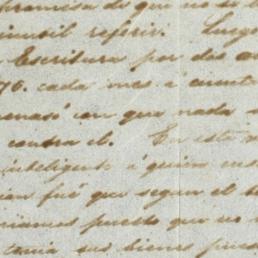 promesa de que no se
inutil referir. Luego
Escritura por dos a
76. cada mes á cuenta
con que nada
contra el. En este
inteligente á quien
fué que segun el
puesto que no
tenia sus bienes